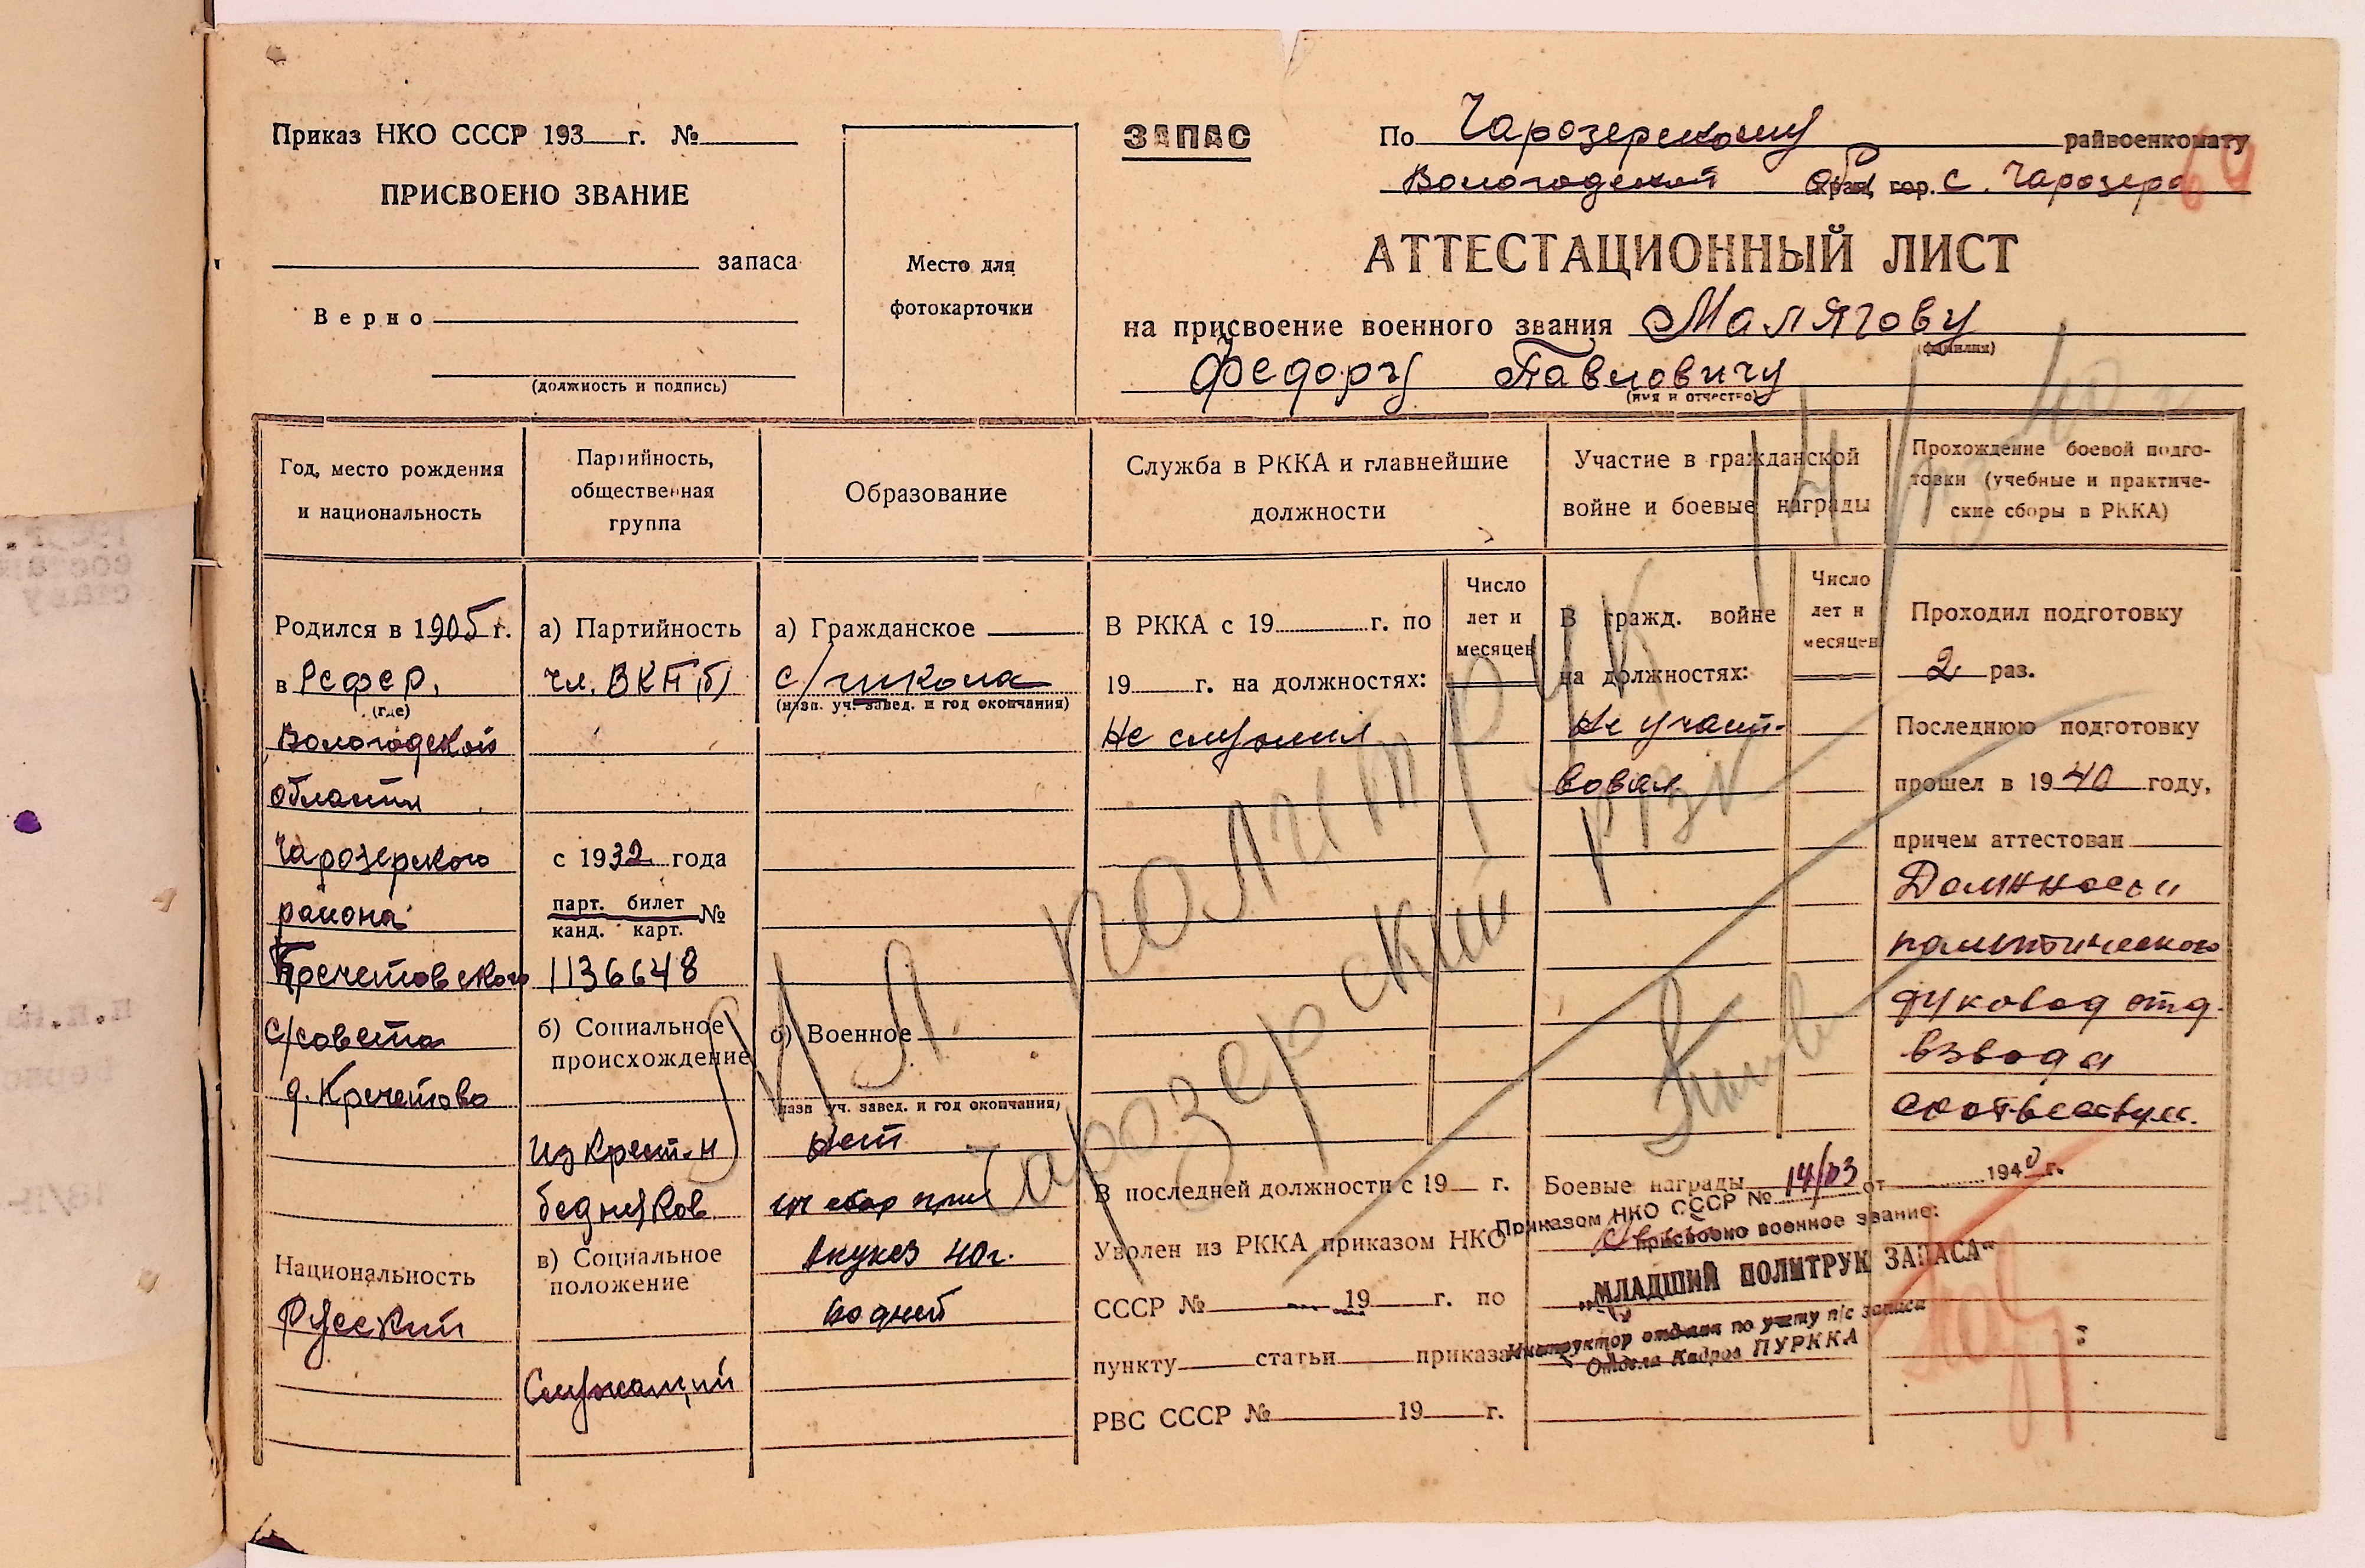 Приказ НКО СССР 193 г. №
ПРИСВОЕНО ЗВАНИЕ
запаса
Верно
(должность и подпись)
Место для
фотокарточки
ЗАПАС
По Чарозерскому райвоенкомату
Вологодской обл гор. с. Чарозеро
АТТЕСТАЦИОННЫЙ ЛИСТ
на присвоение военного звания Малягову
(фамилия)
Федору Павловичу
(имя и отчество)
Год, место рождения
и национальность
Родился в 1905 г.
в РСФСР,
(где)
Вологодской
области
Чарозерского
района
Кречетовского
с/совета
д. Кречетово
Национальность
Русский
Партийность,
общественная
группа
а) Партийность
чл. ВКП(б)
с 1932 года
парт. билет №
канд. карт.
1136648
б) Социальное
происхождение
Из крест-н
бедняков
в) Социальное
положение
Служащий
Образование
а) Гражданское
с/школа
(назв. уч. завед. и год окончания)
б) Военное
(назв уч. завед. и год окончания)
Нет
сбор при
40 г.
дней
Служба в РККА и главнейшие
должности
В РККА с 19 г. по
19 г. на должностях:
Не служил
Число
лет и
месяцев
В последней должности с 19 г.
Уволен из РККА приказом НКО
СССР № 19 г. по
пункту статьи приказа
РВС СССР № 19 г.
Участие в гражданской
войне и боевые награды
В гражд. войне
на должностях:
Не участ-
вовал
Число
лет и
месяцев
Боевые награды
Прохождение боевой подго-
товки (учебные и практиче-
ские сборы в РККА)
Проходил подготовку
2 раз.
Последнюю подготовку
прошел в 1940 году,
причем аттестован
Должности
политического
руковод отд.
взвода
соответствует.
Мл. политрук
Чарозерский РВК
Приказом НКО СССР № 14/03 от 1940 г.
присвоено военное звание:
„МЛАДШИЙ ПОЛИТРУК ЗАПАСА"
Инструктор отдела по учету п/с запаса
Отдела Кадров ПУРККА